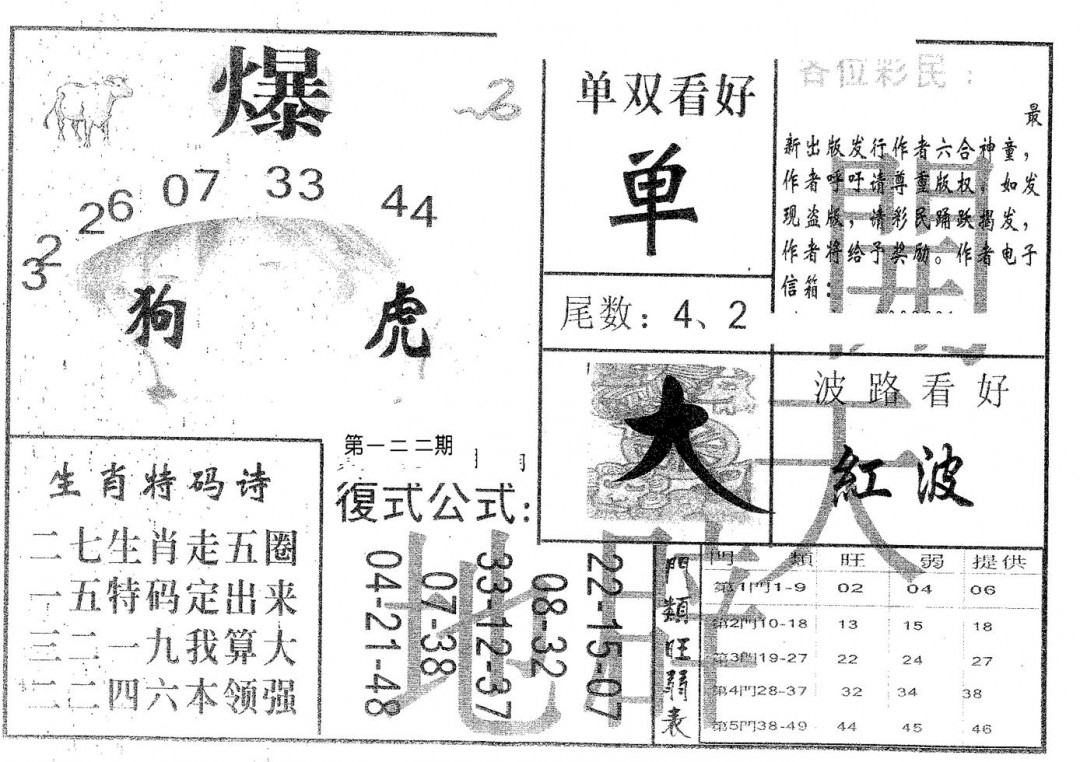 爆
32
26
07
33
44
狗
虎
单双看好
单
尾数：4、2
各位彩民：
最
新出版发行作者六合神童，
作者呼吁请尊重版权。如发
现盗版，请彩民踊跃揭发，
作者将给予奖励。作者电子
信箱：
大
波路看好
紅波
生肖特码诗
二七生肖走五圈
一五特码定出来
三二一九我算大
二二四六本领强
第一二二期
復式公式：
04-21-48
07-38
33-12-37
08-32
22-15-07
門類旺弱表
門類 旺 弱 提供
第1門1-9 02 04 06
第2門10-18 13 15 18
第3門19-27 22 24 27
第4門28-37 32 34 38
第5門38-49 44 45 46